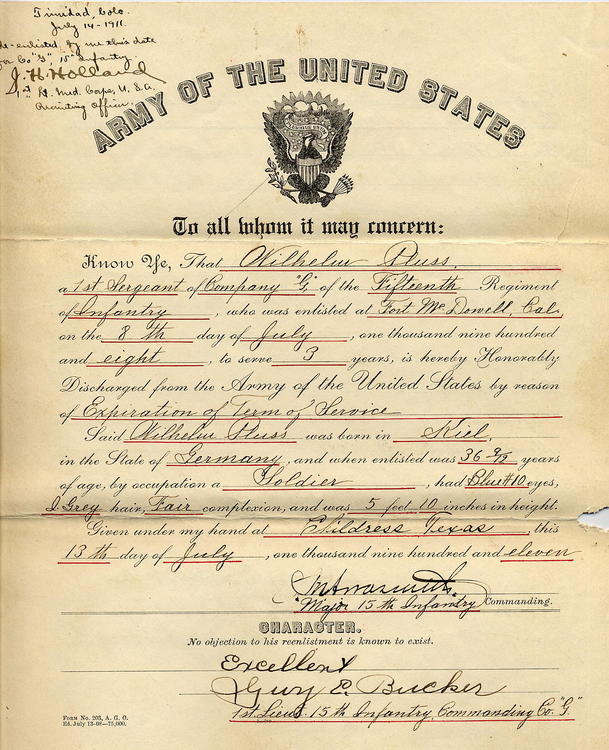 Trinidad, Colo.
July 14-1911.
Re-enlisted by me this date
for Co "G", 15" Infantry
J. H. Holland
1st Lt. Med. Corps, U.S.A.
Recruiting Officer.
ARMY OF THE UNITED STATES
To all whom it may concern:
Know Ye, That Wilhelm Pluss,
a 1st Sergeant of Company "G", of the Fifteenth Regiment
of Infantry, who was enlisted at Fort McDowell, Cal.
on the 8th day of July, one thousand nine hundred
and eight, to serve 3 years, is hereby Honorably
Discharged from the Army of the United States by reason
of Expiration of Term of Service
Said Wilhelm Pluss was born in Kiel,
in the State of Germany, and when enlisted was 36 years
of age, by occupation a Soldier, had Blue #10 eyes,
Grey hair, Fair complexion, and was 5 feet 10 inches in height.
Given under my hand at Childress Texas, this
13th day of July, one thousand nine hundred and eleven
Major 15th Infantry Commanding.
CHARACTER.
No objection to his reenlistment is known to exist.
Excellent
Guy E. Bucker
1st Lieut. 15th Infantry, Commanding Co. "G".
Form No. 203, A. G. O.
Ed. July 13-08-75,000.